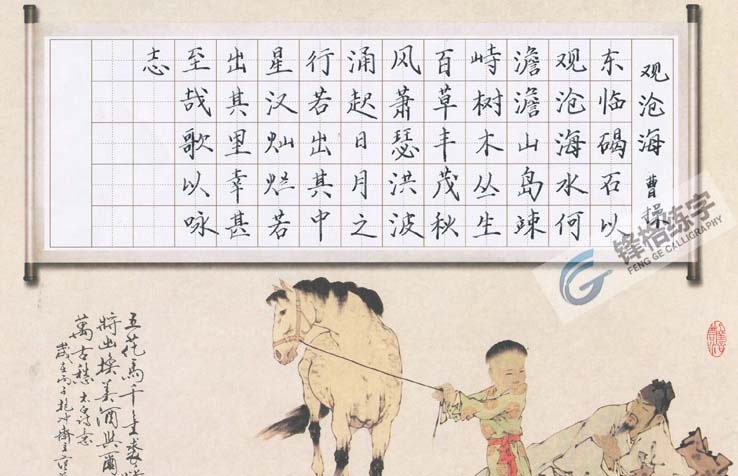 观沧海 曹操
东临碣石以
观沧海水何
澹澹山岛竦
峙树木丛生
百草丰茂秋
风萧瑟洪波
涌起日月之
行若出其中
星汉灿烂若
出其里幸甚
至哉歌以咏
志
锋格练字
FENG GE CALLIGRAPHY
五花馬千金裘
將出換美酒與爾
萬古愁 太白诗意